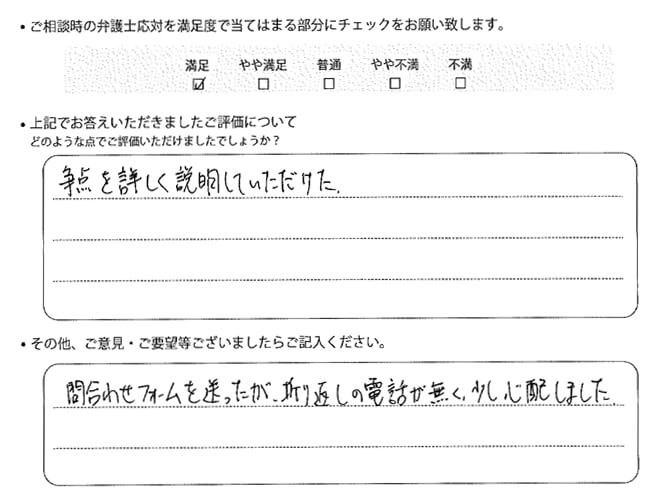 ・ご相談時の弁護士応対を満足度で当てはまる部分にチェックをお願い致します。
満足 やや満足 普通 やや不満 不満
☑ □ □ □ □
・上記でお答えいただきましたご評価について
どのような点でご評価いただけましたでしょうか？
争点を詳しく説明していただけた.
・その他、ご意見・ご要望等ございましたらご記入ください。
問合わせフォームを送ったが、折り返しの電話が無く、少し心配しました.